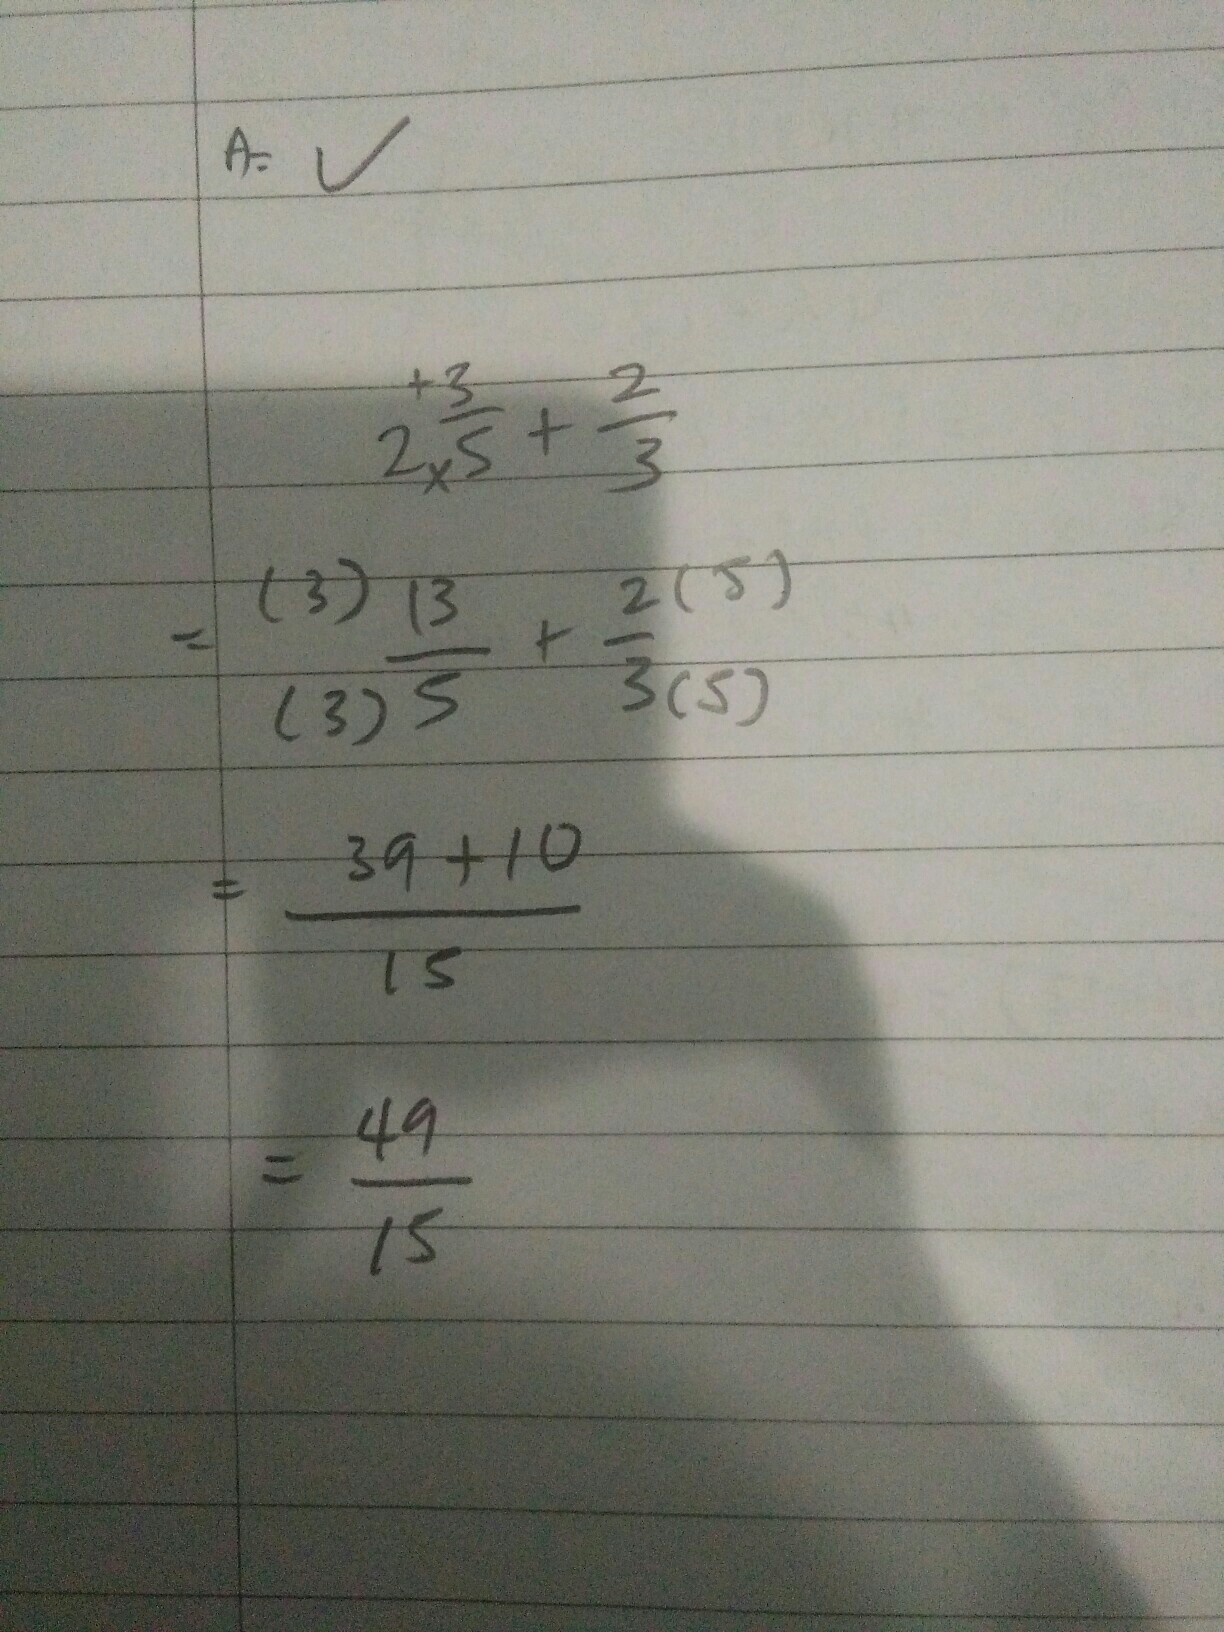 A= ✓
2 +3/×5 + 2/3
= (3)13/(3)5 + 2(5)/3(5)
= 39+10/15
= 49/15